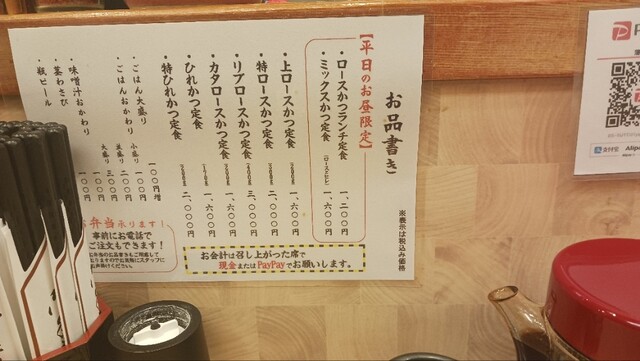 お品書き
※表示は税込み価格
【平日のお昼限定】
・ロースかつランチ定食 一、二〇〇円
・ミックスかつ定食 一、六〇〇円
・上ロースかつ定食 一、六〇〇円
・特ロースかつ定食 二、〇〇〇円
・リブロースかつ定食 三、〇〇〇円
・カタロースかつ定食 一、六〇〇円
・ひれかつ定食 一、六〇〇円
・特ひれかつ定食 二、〇〇〇円
・ごはん大盛り 一〇〇円増
・ごはんおかわり 小盛り 一〇〇円
並盛り 二〇〇円
大盛り 三〇〇円
・味噌汁おかわり 一〇〇円
・茎わさび
・瓶ビール
弁当承ります!
事前にお電話で
ご注文もできます!
お会計は召し上がった席で
現金またはPayPayでお願いします。
支付宝